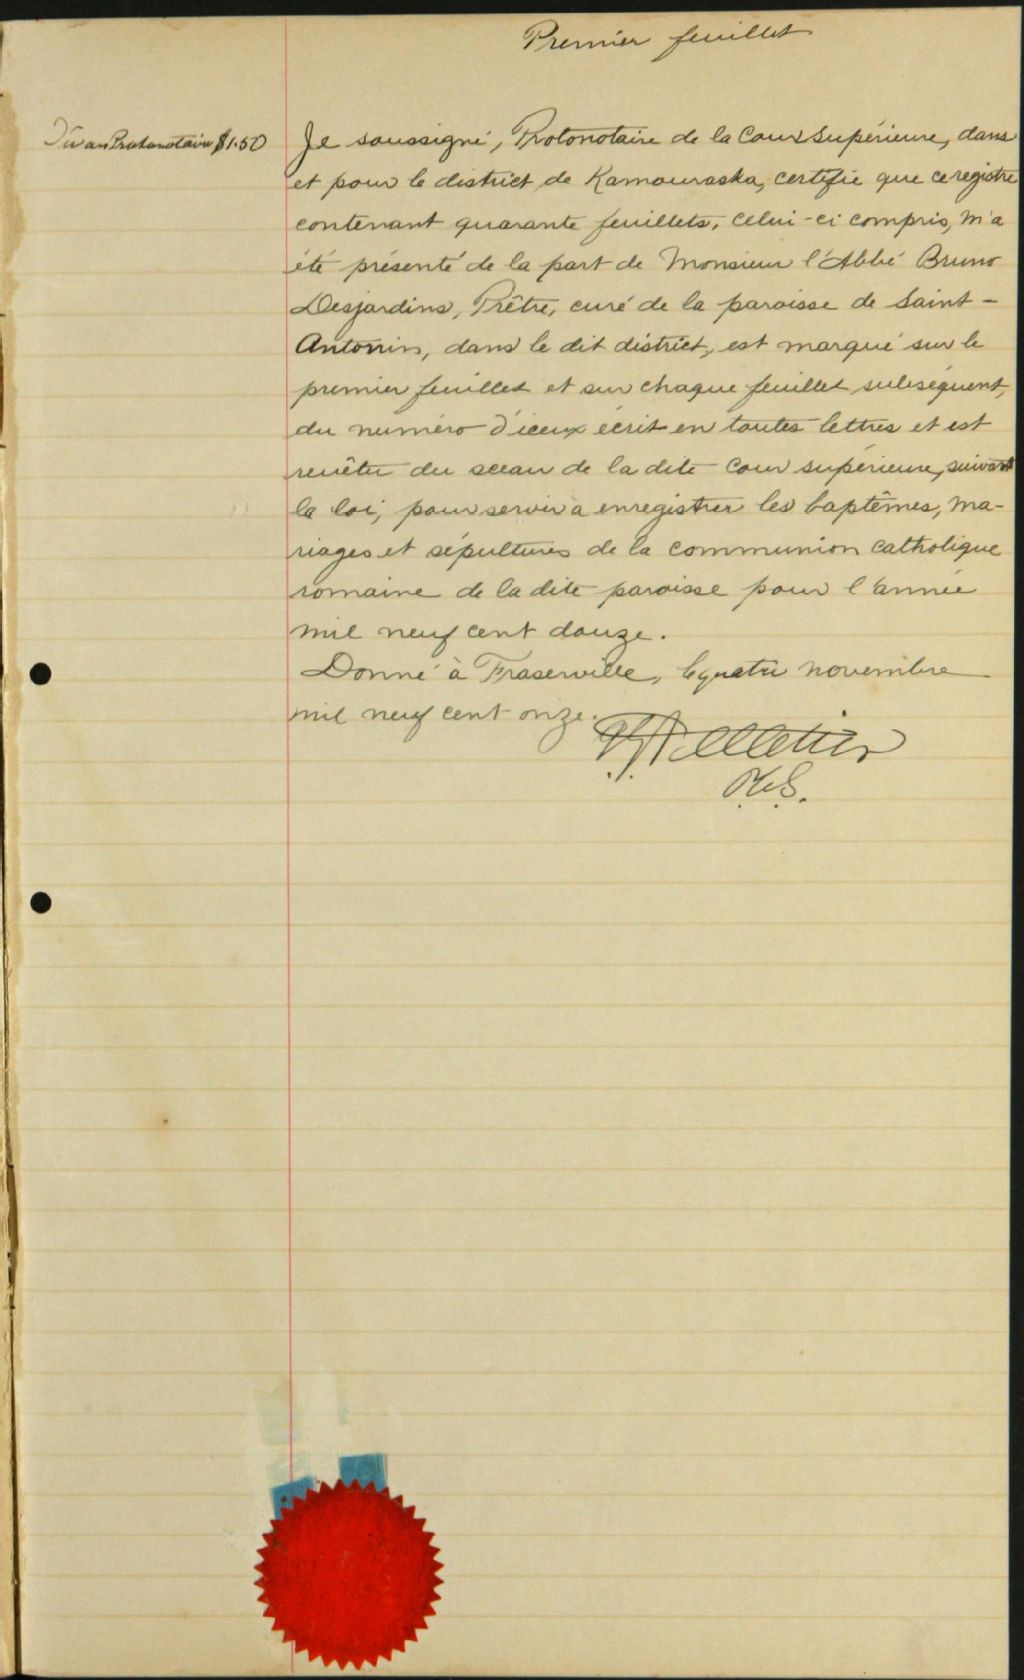 Premier feuillet
Dû au Protonotaire $1.50
Je soussigné, Protonotaire de la Cour Supérieure, dans
et pour le district de Kamouraska, certifie que ce registre
contenant quarante feuillets, celui-ci compris, m'a
été présenté de la part de Monsieur l'Abbé Bruno
Desjardins, Prêtre, curé de la paroisse de Saint-
Antonin, dans le dit district, est marqué sur le
premier feuillet et sur chaque feuillet subséquent,
du numéro d'iceux écrit en toutes lettres et est
revêtu du sceau de la dite Cour supérieure, suivant
la loi, pour servir à enregistrer les baptêmes, ma-
riages et sépultures de la communion catholique
romaine de la dite paroisse pour l'année
mil neuf cent douze.
Donné à Fraserville, le quatre novembre
mil neuf cent onze.
Pelletier
P.C.S.